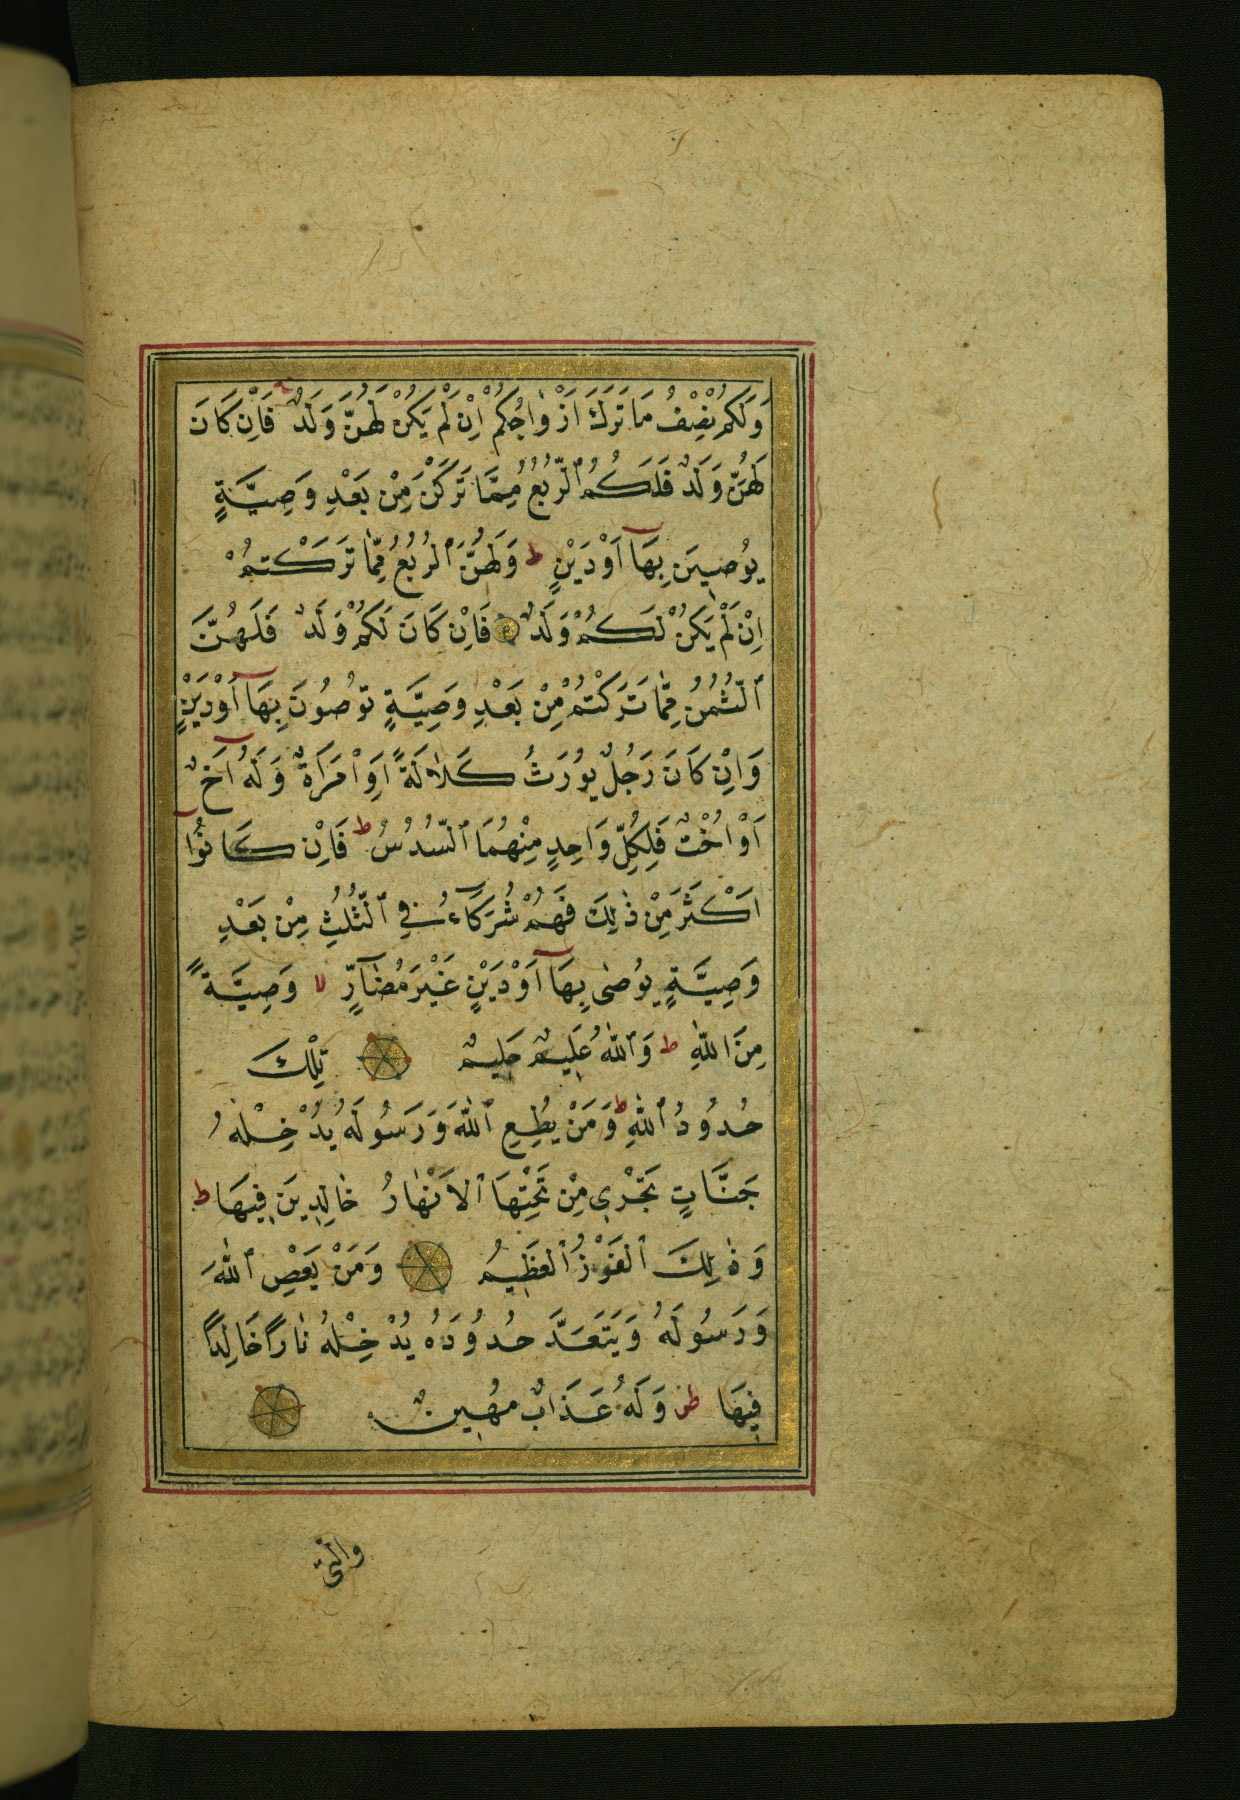 وَلَكُمْ نِصْفُ مَا تَرَكَ اَزْوٰاجُكُمْ اِنْ لَمْ يَكُنْ لَهُنَّ وَلَدٌ فَاِنْ كَانَ
لَهُنَّ وَلَدٌ فَلَكُمُ ٱلرُّبُعُ مِمَّا تَرَكْنَ مِنْ بَعْدِ وَصِيَّةٍ
يُوصِينَ بِهَآ اَوْ دَيْنٍ ط وَلَهُنَّ ٱلرُّبُعُ مِمّٰا تَرَكْتُمْ
اِنْ لَمْ يَكُنْ لَكُمْ وَلَدٌ فَاِنْ كَانَ لَكُمْ وَلَدٌ فَلَهُنَّ
ٱلثُّمُنُ مِمّٰا تَرَكْتُمْ مِنْ بَعْدِ وَصِيَّةٍ تُوصُونَ بِهَآ اَوْ دَيْنٍ
وَاِنْ كَانَ رَجُلٌ يُورَثُ كَلاٰلَةً اَوِ ٱمْرَاَةٌ وَلَهُ اَخٌ
اَوْ اُخْتٌ فَلِكُلِّ وَاحِدٍ مِنْهُمَا ٱلسُّدُسُ ط فَاِنْ كَانُوٓا
اَكْثَرَ مِنْ ذٰلِكَ فَهُمْ شُرَكَآءُ فِي ٱلثُّلُثِ مِنْ بَعْدِ
وَصِيَّةٍ يُوصٰى بِهَآ اَوْ دَيْنٍ غَيْرَ مُضَآرٍّ لا وَصِيَّةً
مِنَ اللّٰهِ ط وَٱللّٰهُ عَلِيمٌ حَلِيمٌ تِلْكَ
حُدُودُ ٱللّٰهِ ط وَمَنْ يُطِعِ ٱللّٰهَ وَرَسُولَهُ يُدْخِلْهُ
جَنَّاتٍ تَجْرِي مِنْ تَحْتِهَا ٱلاَنْهٰارُ خٰالِدِينَ فِيهَا ط
وَذٰلِكَ ٱلْفَوْزُ ٱلْعَظِيمُ وَمَنْ يَعْصِ ٱللّٰهَ
وَرَسُولَهُ وَيَتَعَدَّ حُدُودَهُ يُدْخِلْهُ نٰارًا خَالِدًا
فِيهَا ص وَلَهُ عَذَابٌ مُهِينٌ
وَالّٰتِى